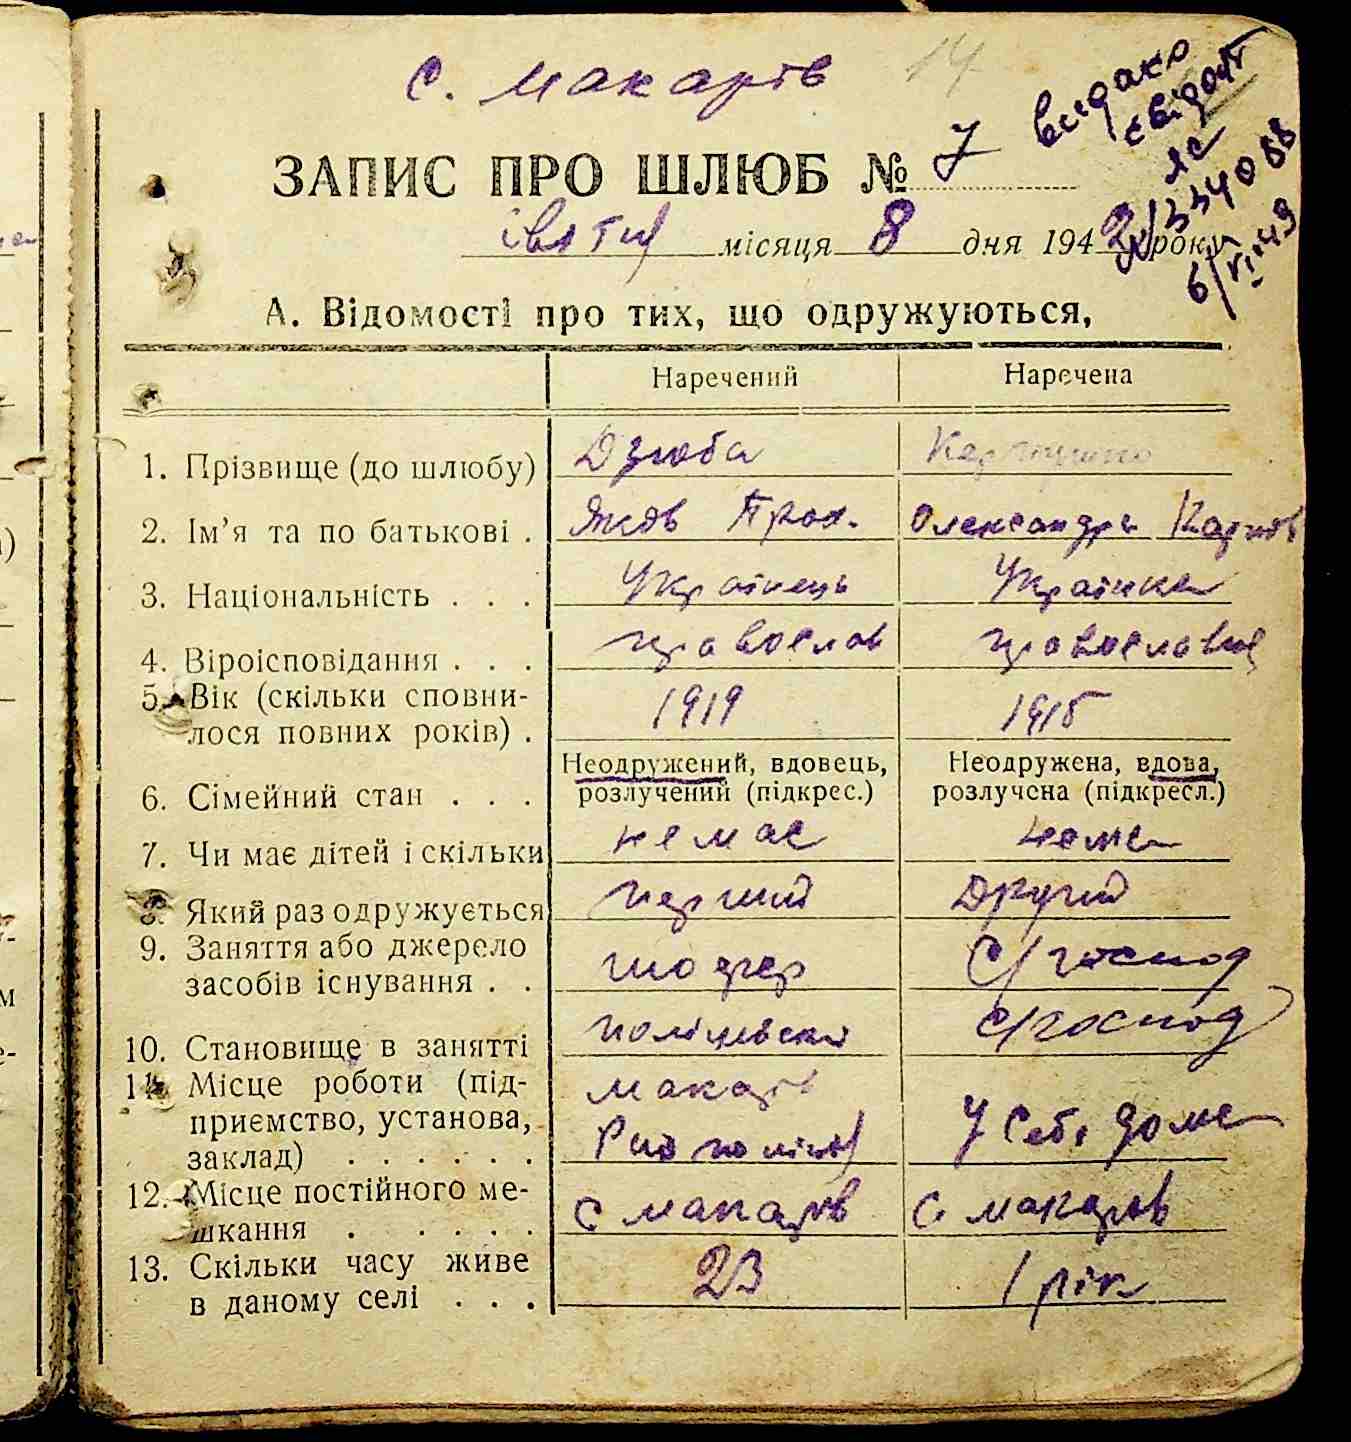 с. Макарів 14
видано
свідоцт
ЯС
334088
6/VI 49
ЗАПИС ПРО ШЛЮБ № 7
місяця 8 дня 1942 року
А. Відомості про тих, що одружуються,
Наречений Наречена
1. Прізвище (до шлюбу) Дзюба
2. Ім’я та по батькові . Яков Прок. Олександра Карпів
3. Національність . . . Українець Українка
4. Віроісповідання . . . православ православна
5. Вік (скільки сповни-
лося повних років) . 1919 1915
Неодружений, вдовець, Неодружена, вдова,
6. Сімейний стан . . . розлучений (підкрес.) розлучена (підкресл.)
7. Чи має дітей і скільки немає нема
8. Який раз одружується перший Другий
9. Заняття або джерело
засобів існування . . шофер С/господ
10. Становище в занятті с/господ
11. Місце роботи (під- Макарів
приємство, установа, У себе дома
заклад) . . . . . .
12. Місце постійного ме-
шкання . . . . . с Макарів с Макарів
13. Скільки часу живе
в даному селі . . . 23 1 рік